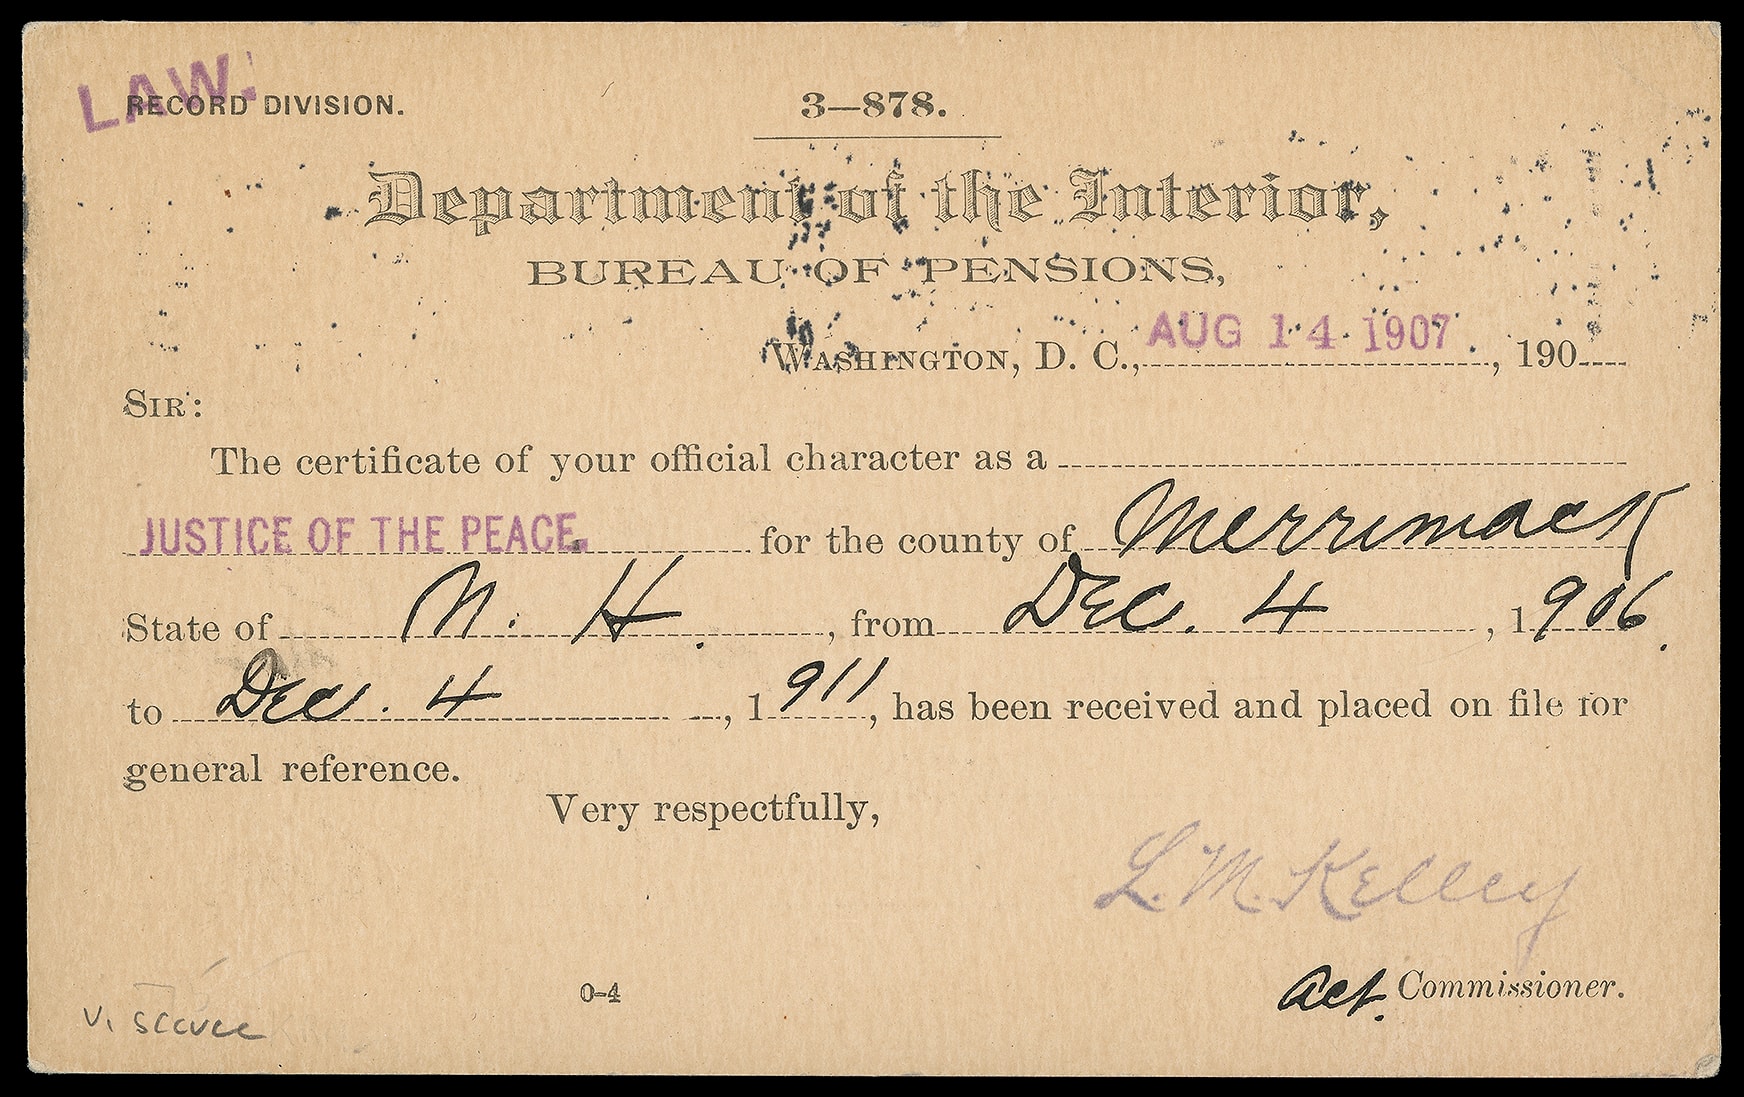 LAW.
RECORD DIVISION.
3—878.
Department of the Interior,
BUREAU OF PENSIONS,
WASHINGTON, D. C., AUG 14 1907, 190
SIR:
The certificate of your official character as a
JUSTICE OF THE PEACE. for the county of Merrimack
State of N. H., from Dec. 4, 1906.
to Dec. 4, 1911, has been received and placed on file for
general reference.
Very respectfully,
L. M. Kelley
Act. Commissioner.
0-4
V.